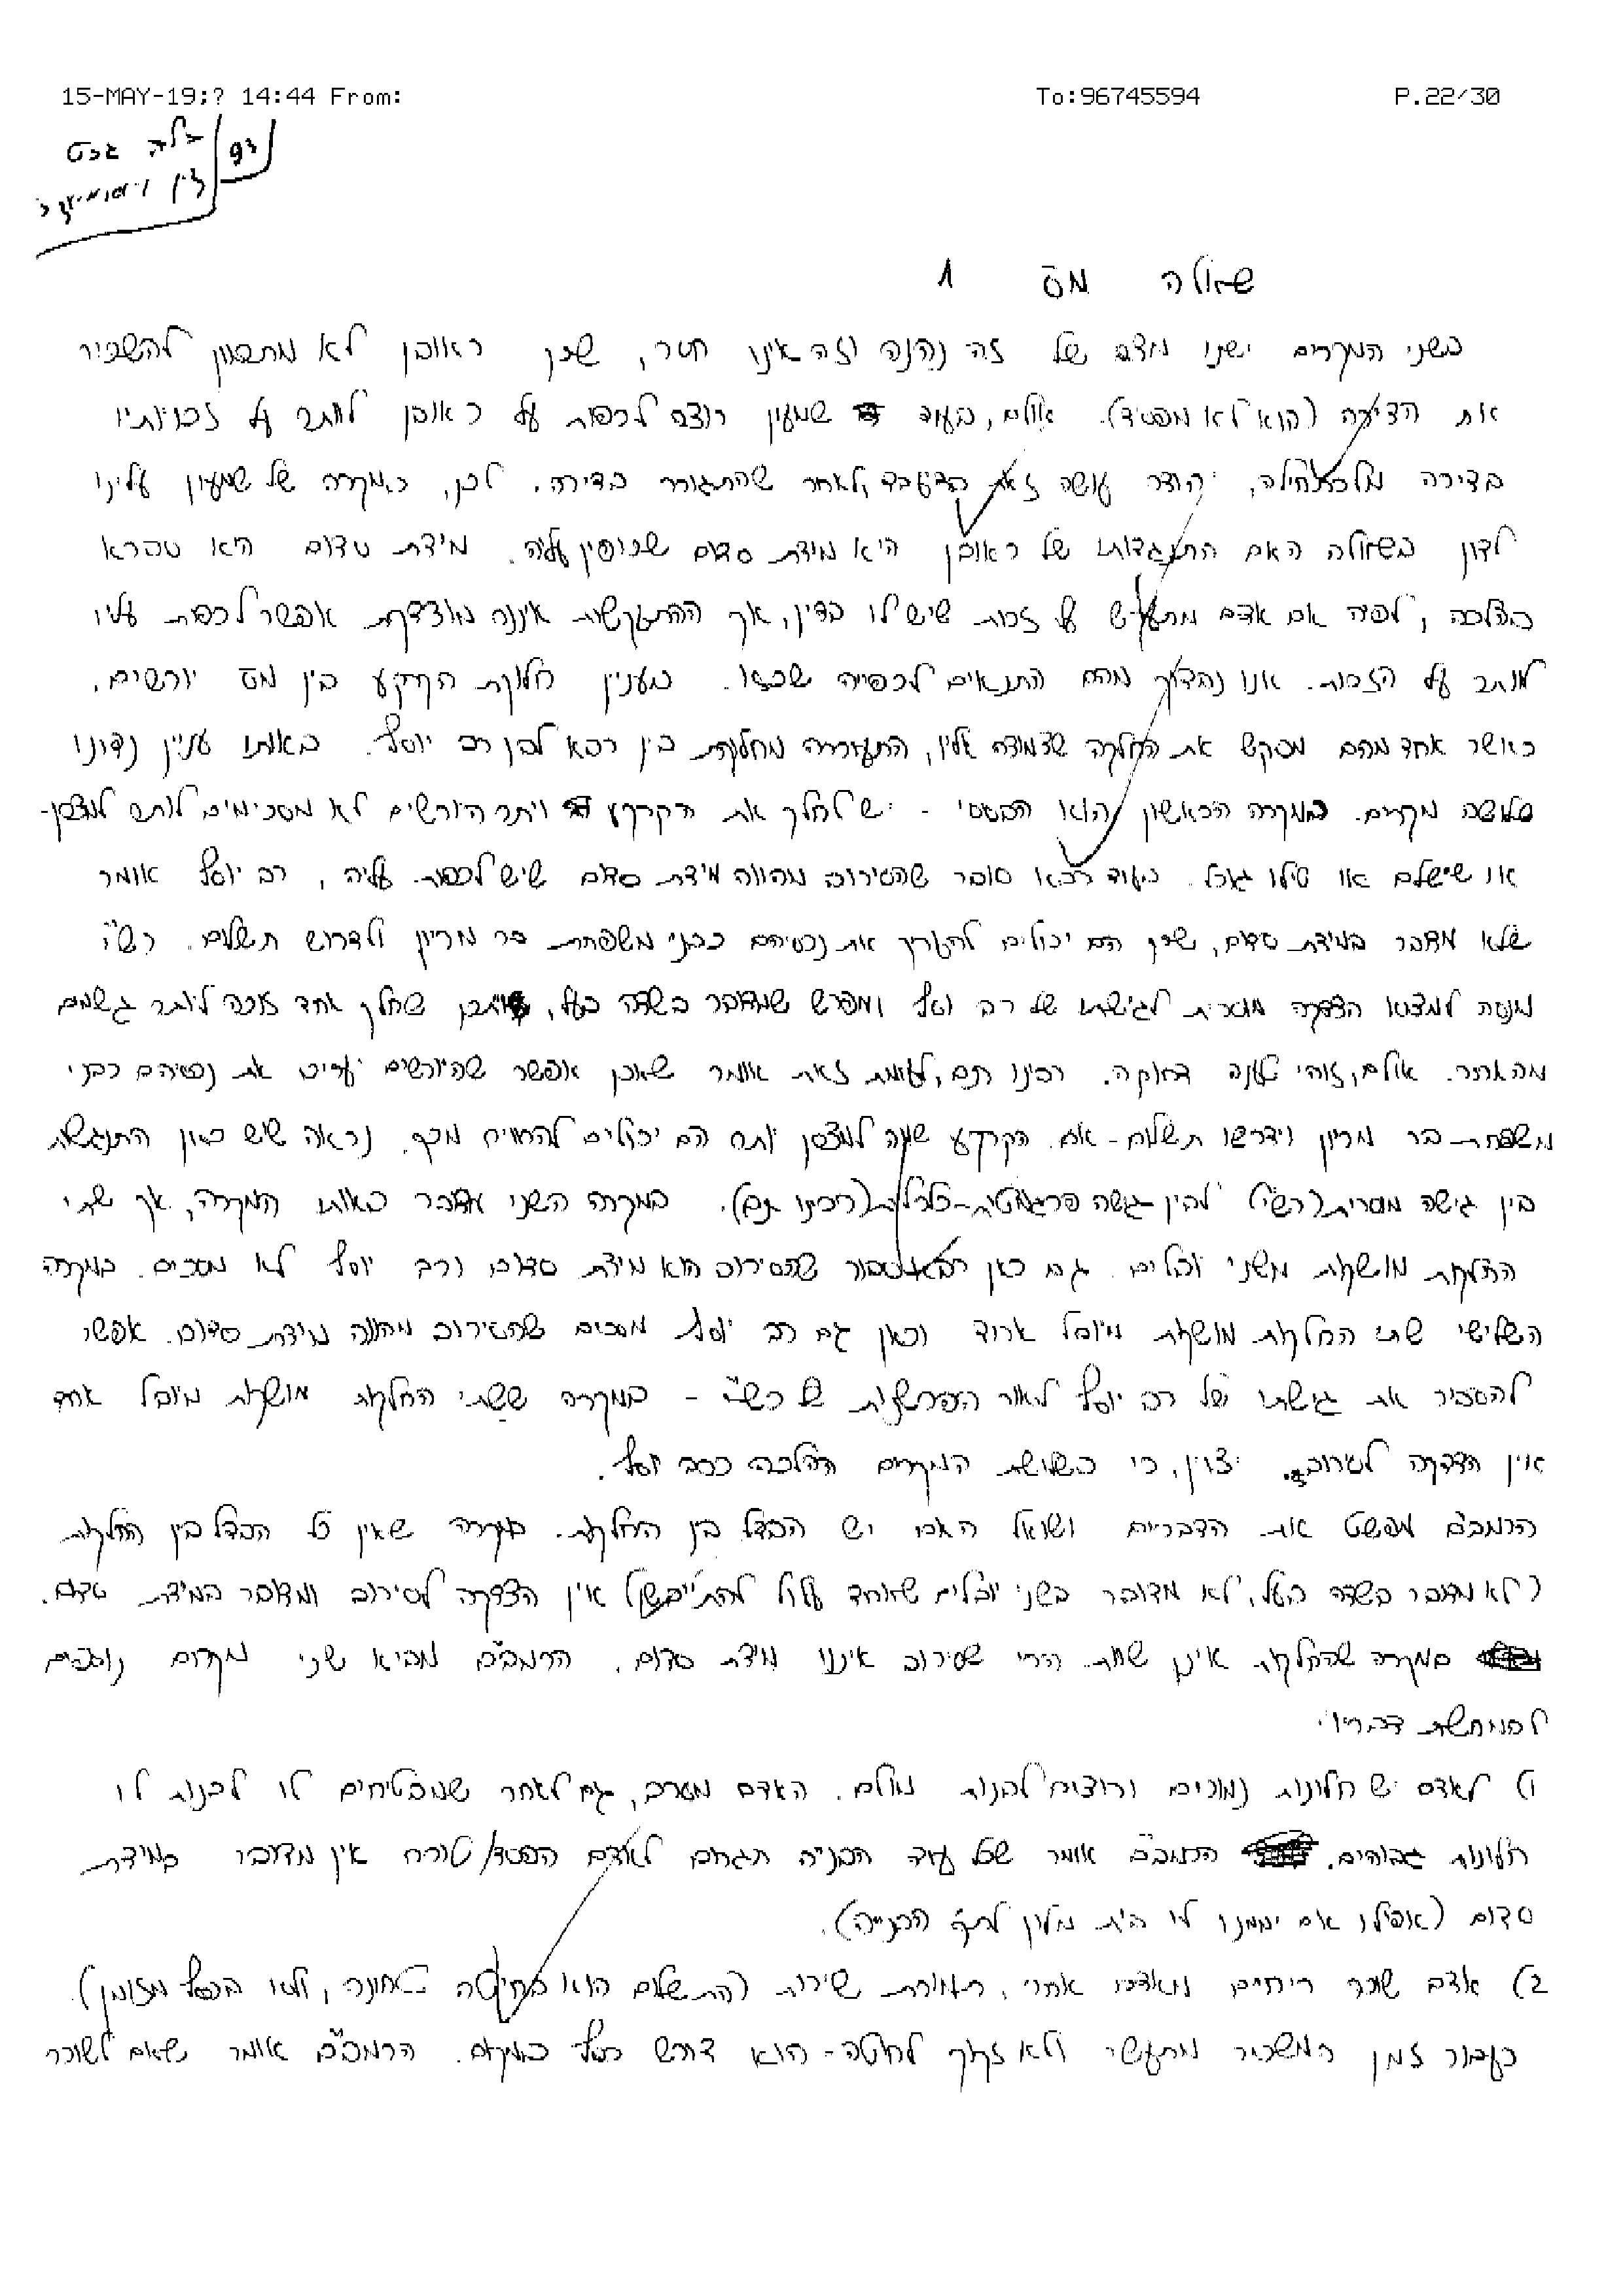 15-MAY-19;? 14:44 From: To:96745594 P.22/30
שאלה מס 1
בשני המקרים ישנו מצב של זה נהנה וזה אינו חסר, שכן ראובן לא מתכוון להשכיר
את הדירה (הוא לא מפסיד). אולם, בעוד שמעון רוצה לכפות על ראובן לוותר על זכויותיו
בדירה מלכתחילה, יהודה עושה זאת בדיעבד, לאחר שהתגורר בדירה. לכן, במקרה של שמעון עלינו
לדון בשאלה האם התנגדותו של ראובן היא מידת סדום שכופין עליה. מידת סדום היא סברא
בהלכה, לפיה אם אדם מתעקש על זכות שיש לו בדין, אך ההתעקשות איננה מוצדקת אפשר לכפות עליו
לוותר על הזכות. אנו נבדוק מהם התנאים לכפייה שכזו. בעניין חלוקת הקרקע בין מס יורשים,
כאשר אחד מהם מבקש את החלקה שצמודה אליו, התעוררה מחלוקת בין רבא לבין רב יוסף. באותו עניין נדונו
שלושה מקרים. במקרה הראשון הוא הבסיסי - יש לחלק את הקרקע ויתר היורשים לא מסכימים לותר למצרן-
או שישלם או טילו גורל. בעוד רבא סובר שהסירוב מהווה מידת סדום שיש לכפות עליה, רב יוסף אומר
שלא מדובר במידת סדום, שכן הם יכולים להעריך את נכסיהם כבני משפחת בר מריון ולדרוש תשלום. רש"י
מנסה למצוא הצדקה מוסרית לגישתו של רב יוסף ומפרש שמדובר בשדה בעל, ויתכן שחלק אחד זוכה ליותר גשמים
מהאחר. אולם, זוהי טענה דחוקה. רבינו תם, לעומת זאת אומר שאכן אפשר שהיורשים יעריכו את נכסיהם כבני
משפחת בר מריון וידרשו תשלום - אם הקרקע שווה למצרן יותר הם יכולים להרוויח מכך. נראה שיש כאן התנגשות
בין גישה מוסרית (רש"י) לבין גישה פרגמטית-כלכלית (רבינו תם). במקרה השני מדובר באותו המקרה, אך שתי
החלקות מושקות משני יובלים. גם כאן רבא סבור שהסירוב הוא מידת סדום ורב יוסף לא מסכים. במקרה
השלישי שתי החלקות מושקות מיובל אחד וכאן גם רב יוסף מסכים שהסירוב מהווה מידת סדום. אפשר
להסביר את גישתו של רב יוסף לאור הפרשנות של רש"י - במקרה ששתי החלקות מושקות מיובל אחד
אין הצדקה לסירוב. יצוין, כי בשלושת המקרים ההלכה כרב יוסף.
הרמב"ם מפשט את הדברים ושואל האם יש הבדל בין החלקות. במקרה שאין כל הבדל בין החלקות
(לא מדובר בשדה בעל, לא מדובר בשני יובלים שאחד עלול להתייבש) אין הצדקה לסירוב ומדובר במידת סדום.
במקרה שהחלקות אינן שוות הרי שסירוב איננו מידת סדום. הרמב"ם מביא שני מקרים נוספים
להמחשת דבריו:
1) לאדם יש חלונות נמוכים ורוצים לבנות מולם. האדם מסרב, גם לאחר שמבטיחים לו לבנות לו
חלונות גבוהים. הרמב"ם אומר שכל עוד הבנייה תגרום לאדם הפסד/טורח אין מדובר במידת
סדום (אפילו אם יממנו לו בית מלון לזמן הבנייה).
2) אדם שוכר ריחיים מאדם אחר, תמורת שירות (התשלום הוא בחיטה טחונה, ולא בכסף מזומן).
כעבור זמן המשכיר מתעשר ולא זקוק לחיטה - הוא דורש כסף במקום. הרמב"ם אומר שאם לשוכר